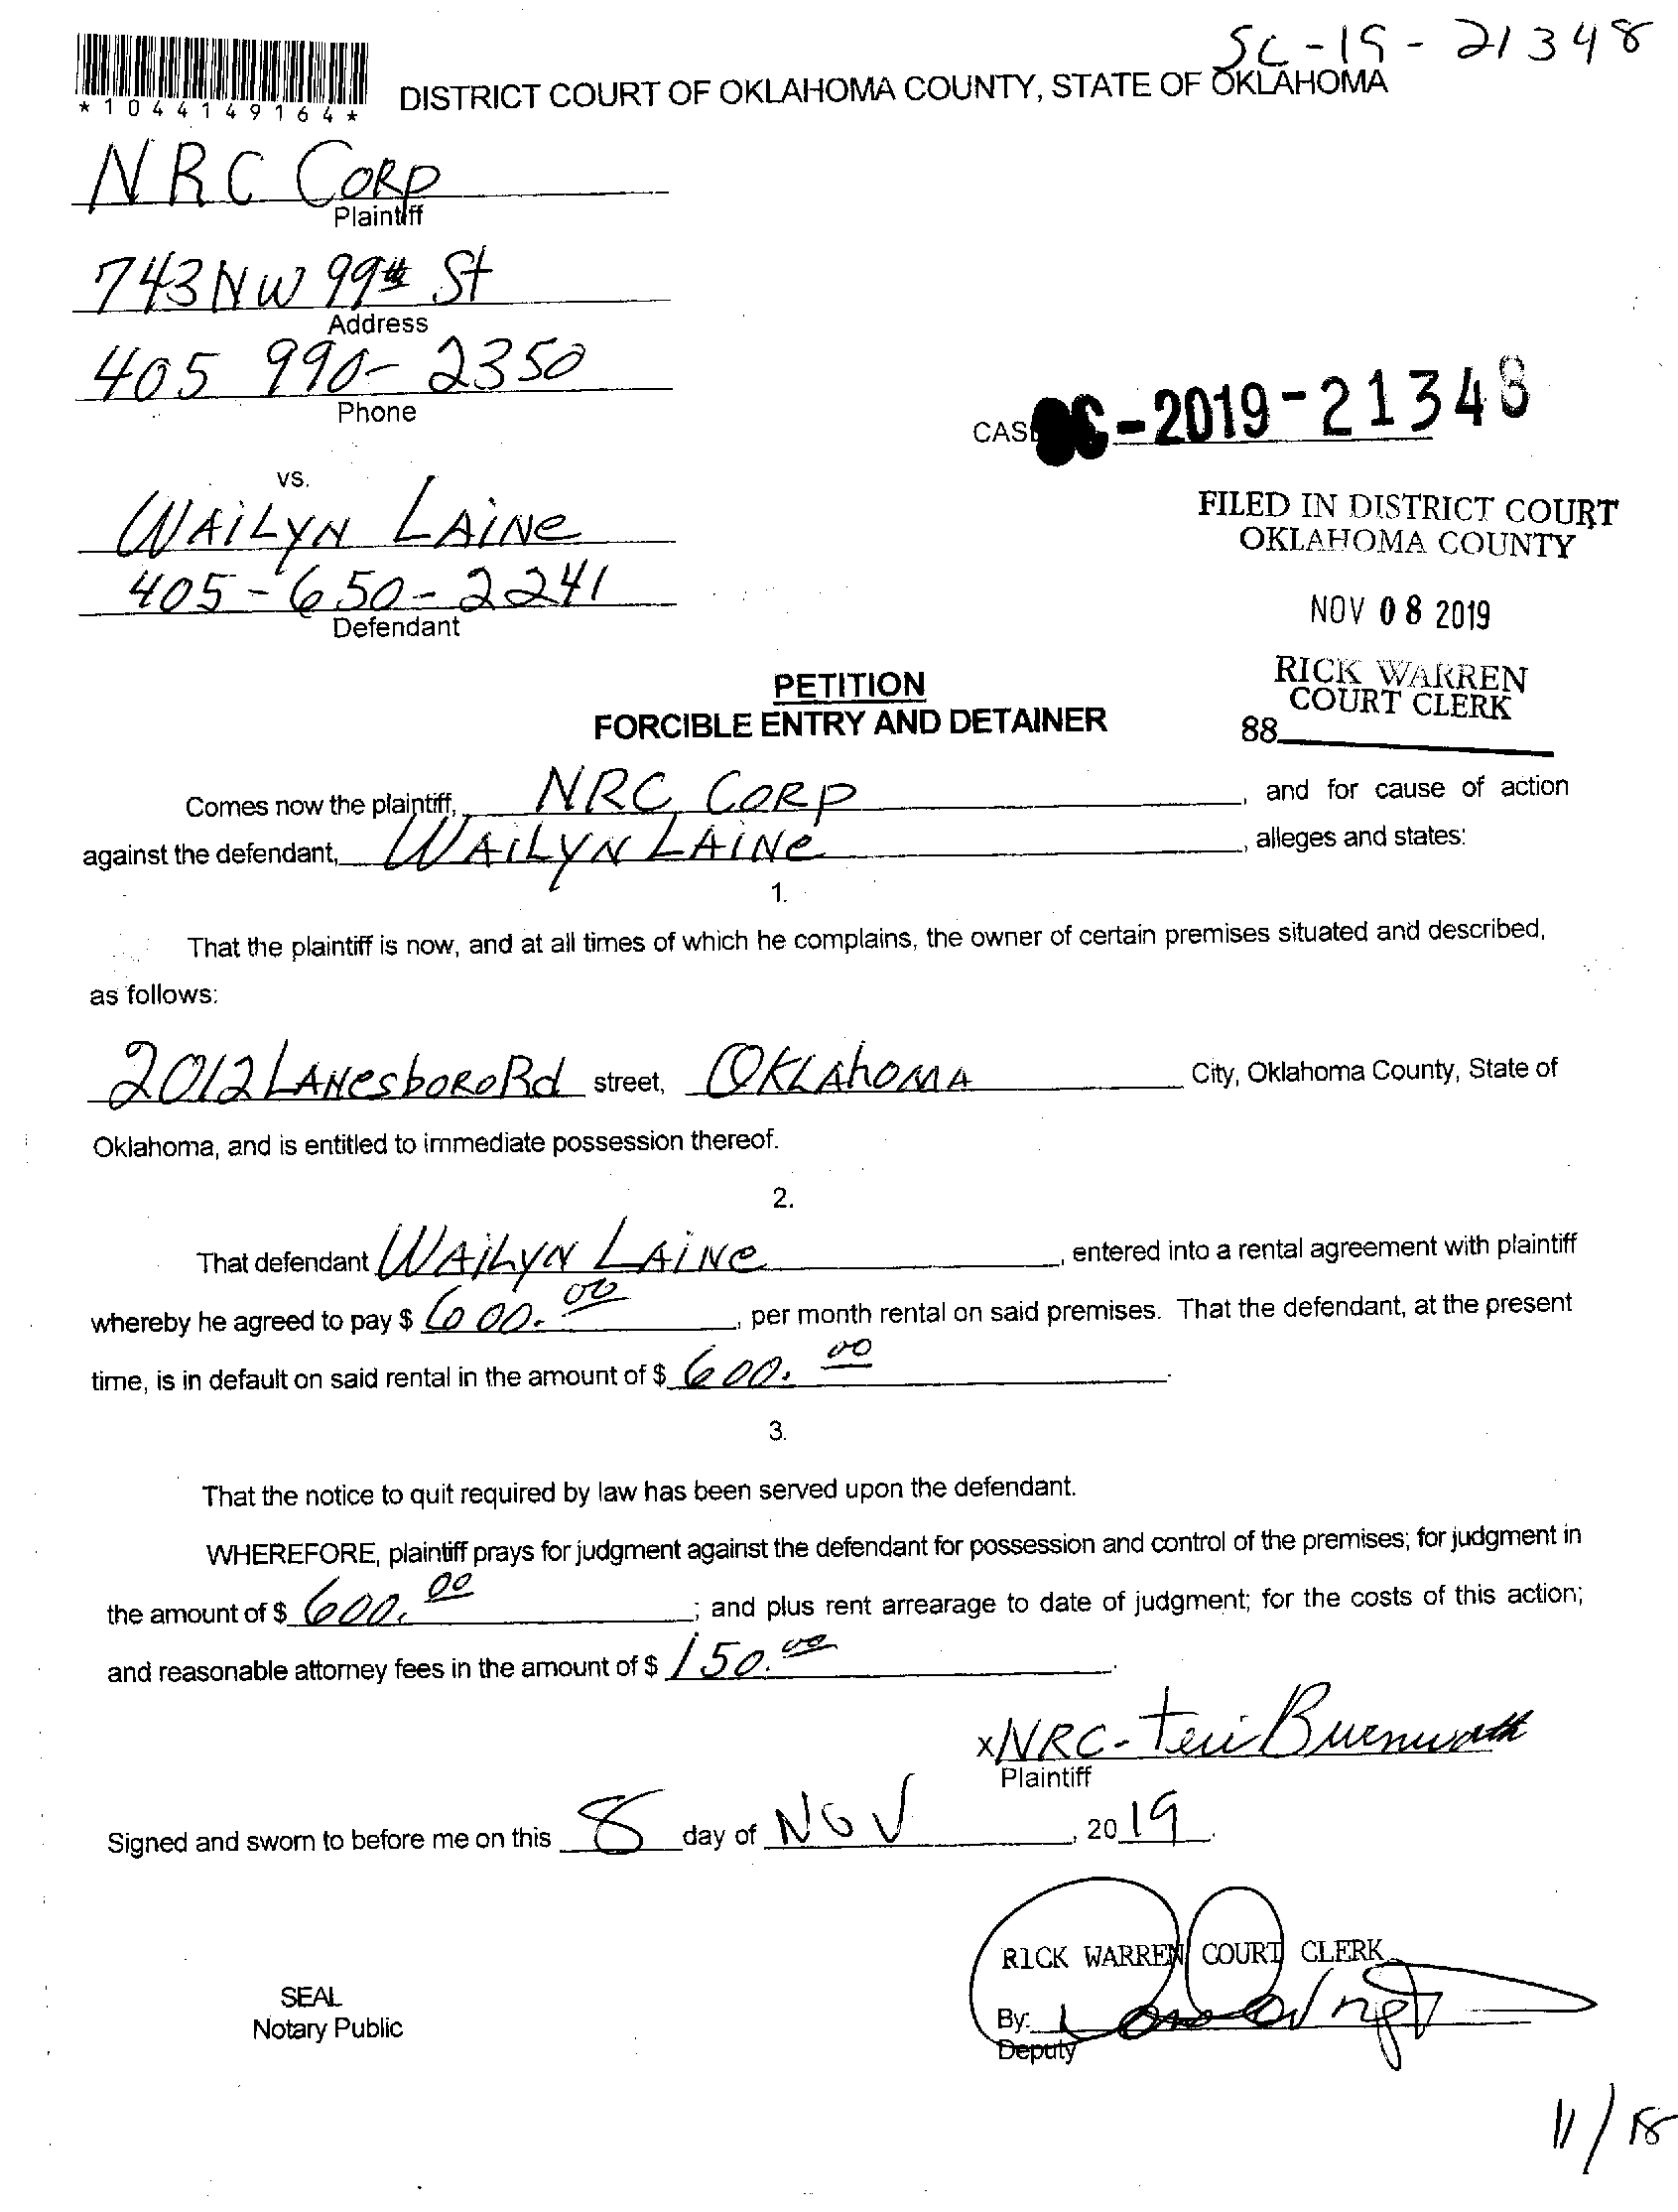 SC-19-21348
*1044149164*
DISTRICT COURT OF OKLAHOMA COUNTY, STATE OF OKLAHOMA
NRC CORP
Plaintiff
743 NW 99th St
Address
405 990-2350
Phone
CAS C-2019-21348
vs.
WAILYN LAINE
405-650-2241
Defendant
FILED IN DISTRICT COURT
OKLAHOMA COUNTY
NOV 08 2019
RICK WARREN
COURT CLERK
88
PETITION
FORCIBLE ENTRY AND DETAINER
Comes now the plaintiff, NRC CORP, and for cause of action
against the defendant, WAILYN LAINE, alleges and states:
1.
That the plaintiff is now, and at all times of which he complains, the owner of certain premises situated and described,
as follows:
2012 LANesboRo Rd street, OKLAhOMA City, Oklahoma County, State of
Oklahoma, and is entitled to immediate possession thereof.
2.
That defendant WAILYN LAINE, entered into a rental agreement with plaintiff
whereby he agreed to pay $ 600.00, per month rental on said premises. That the defendant, at the present
time, is in default on said rental in the amount of $ 600.00.
3.
That the notice to quit required by law has been served upon the defendant.
WHEREFORE, plaintiff prays for judgment against the defendant for possession and control of the premises; for judgment in
the amount of $ 600.00; and plus rent arrearage to date of judgment; for the costs of this action;
and reasonable attorney fees in the amount of $ 150.00.
x NRC-Teri
Plaintiff
Signed and sworn to before me on this 8 day of NOV, 2019.
RICK WARREN COURT CLERK
SEAL
Notary Public
By:
Deputy
11/18